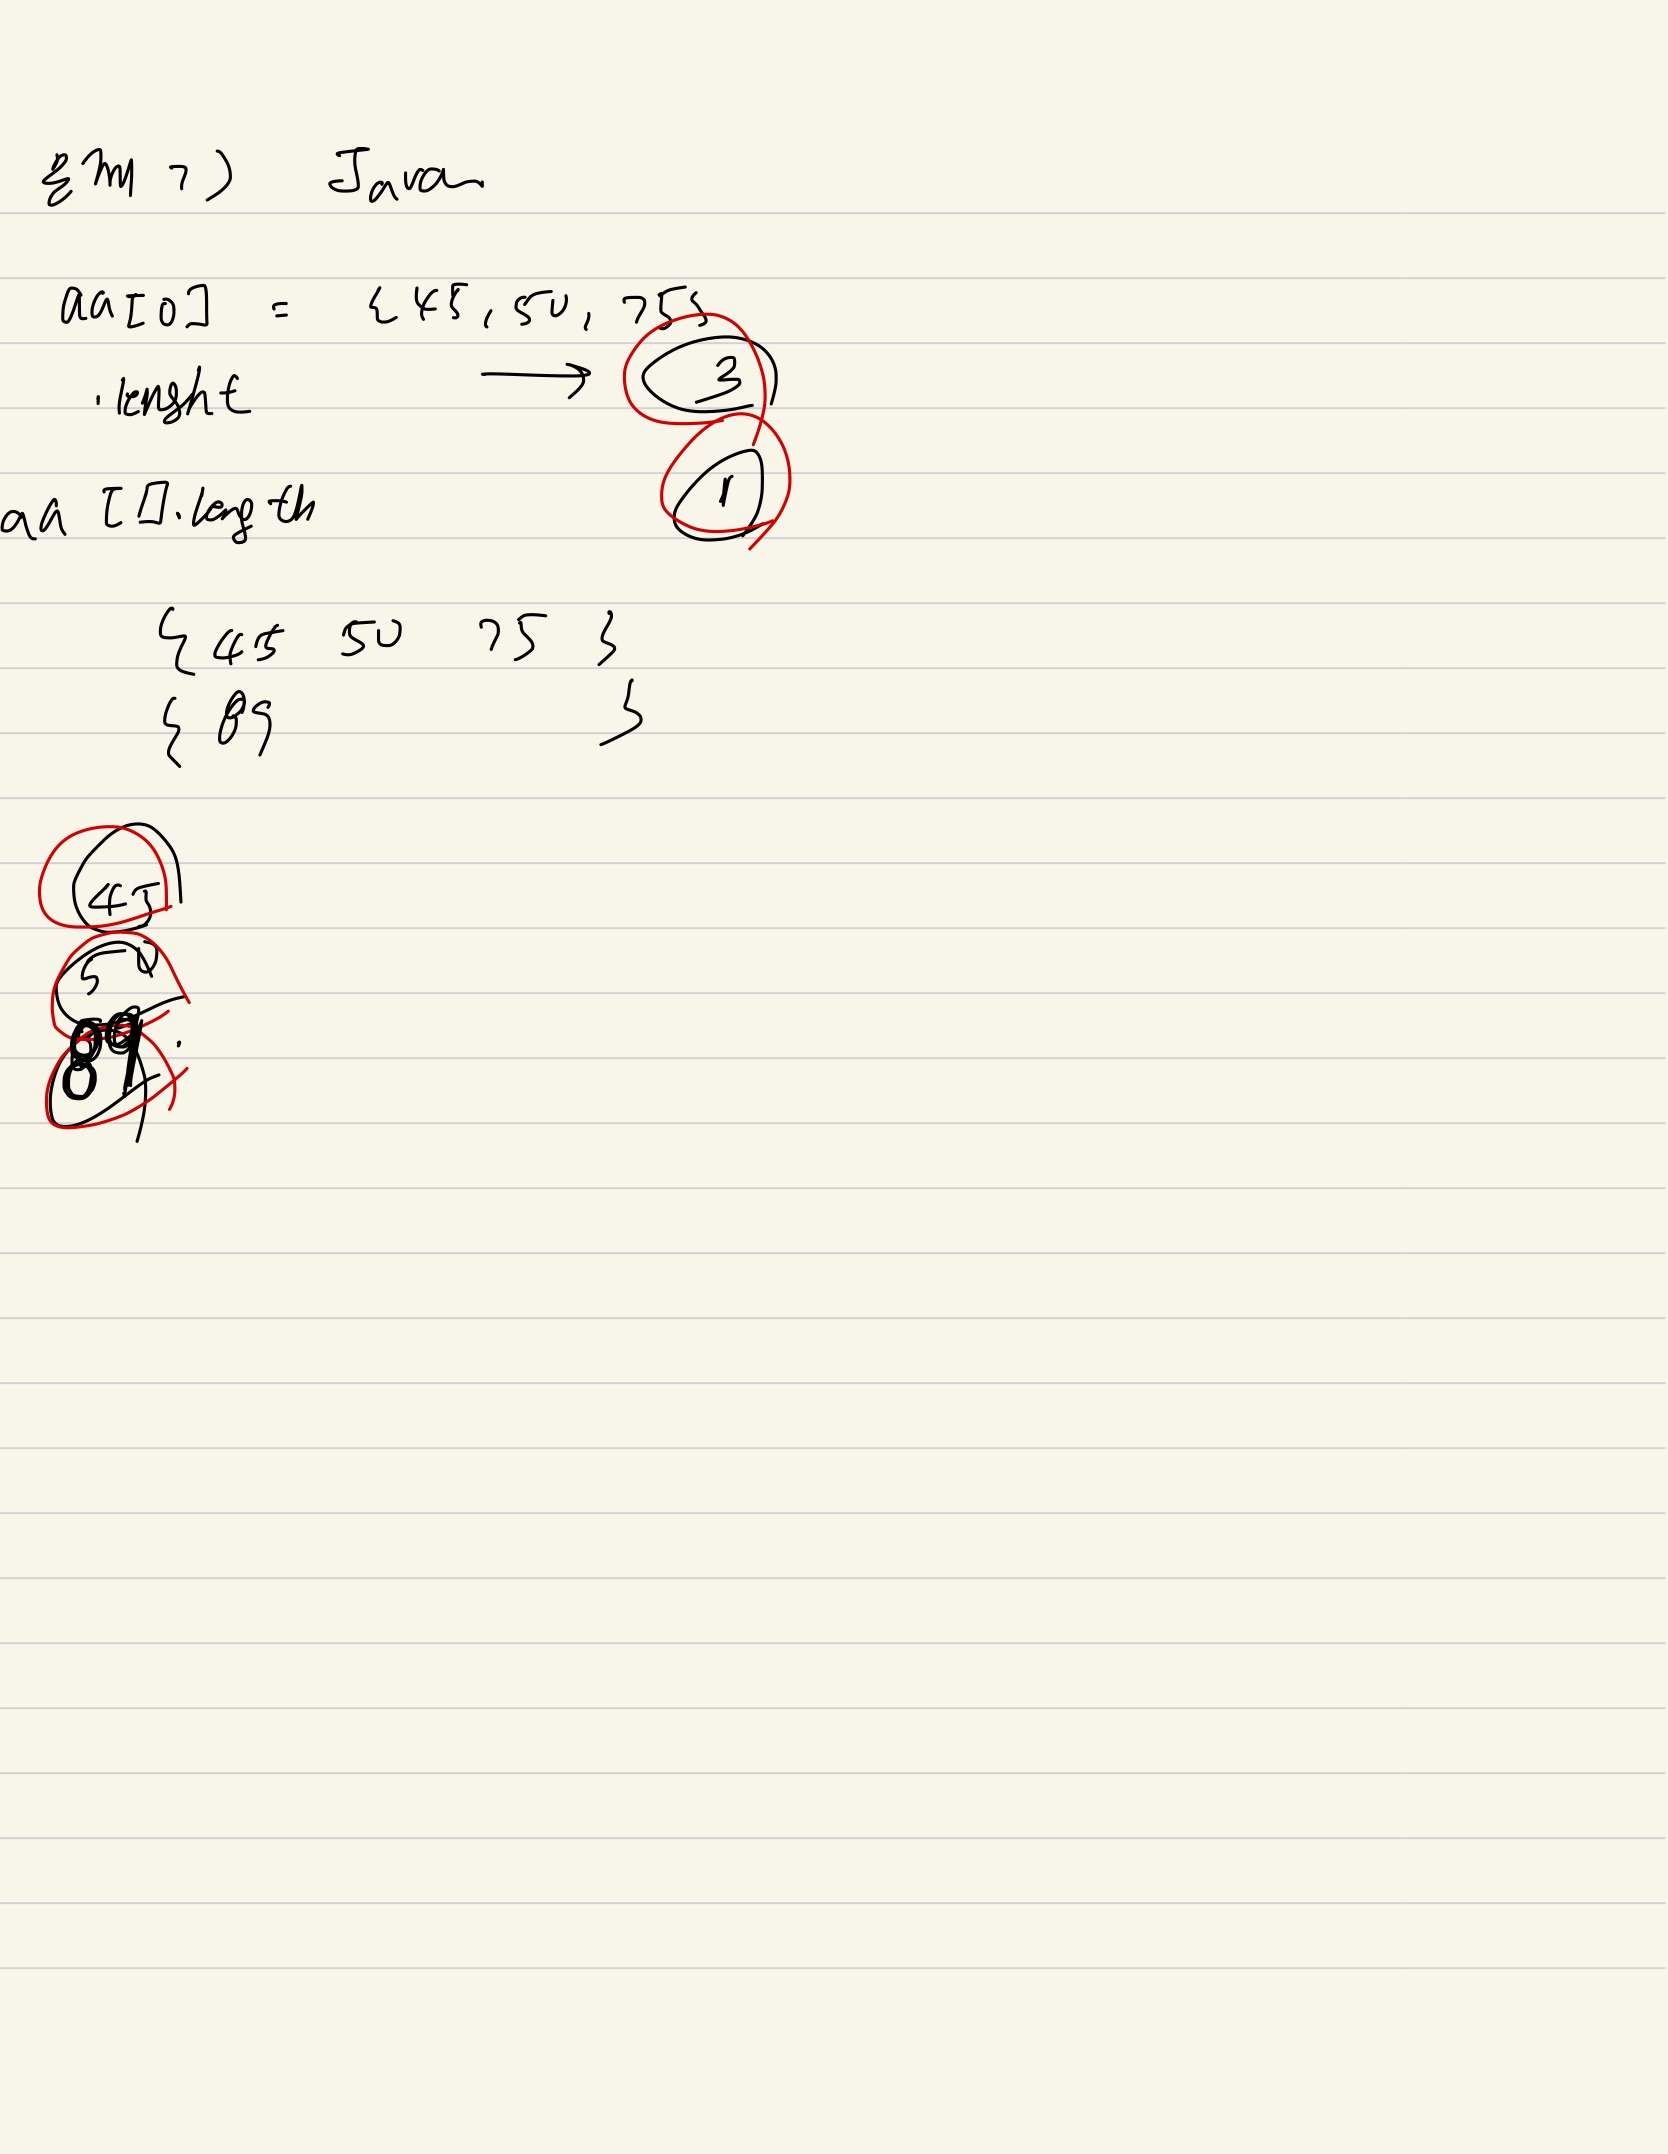 문제 7) Java
aa[0] = {45, 50, 75}
.lenght → 3
aa [].length 1
{45 50 75 }
{ 89 }
45
50
89